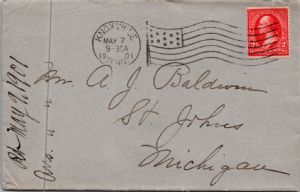 KNOXVILLE
MAY 7
9-30A
1901
TENN.
Mr. A. J. Baldwin
St. Johns
Michigan
May 9 1901
Ans.